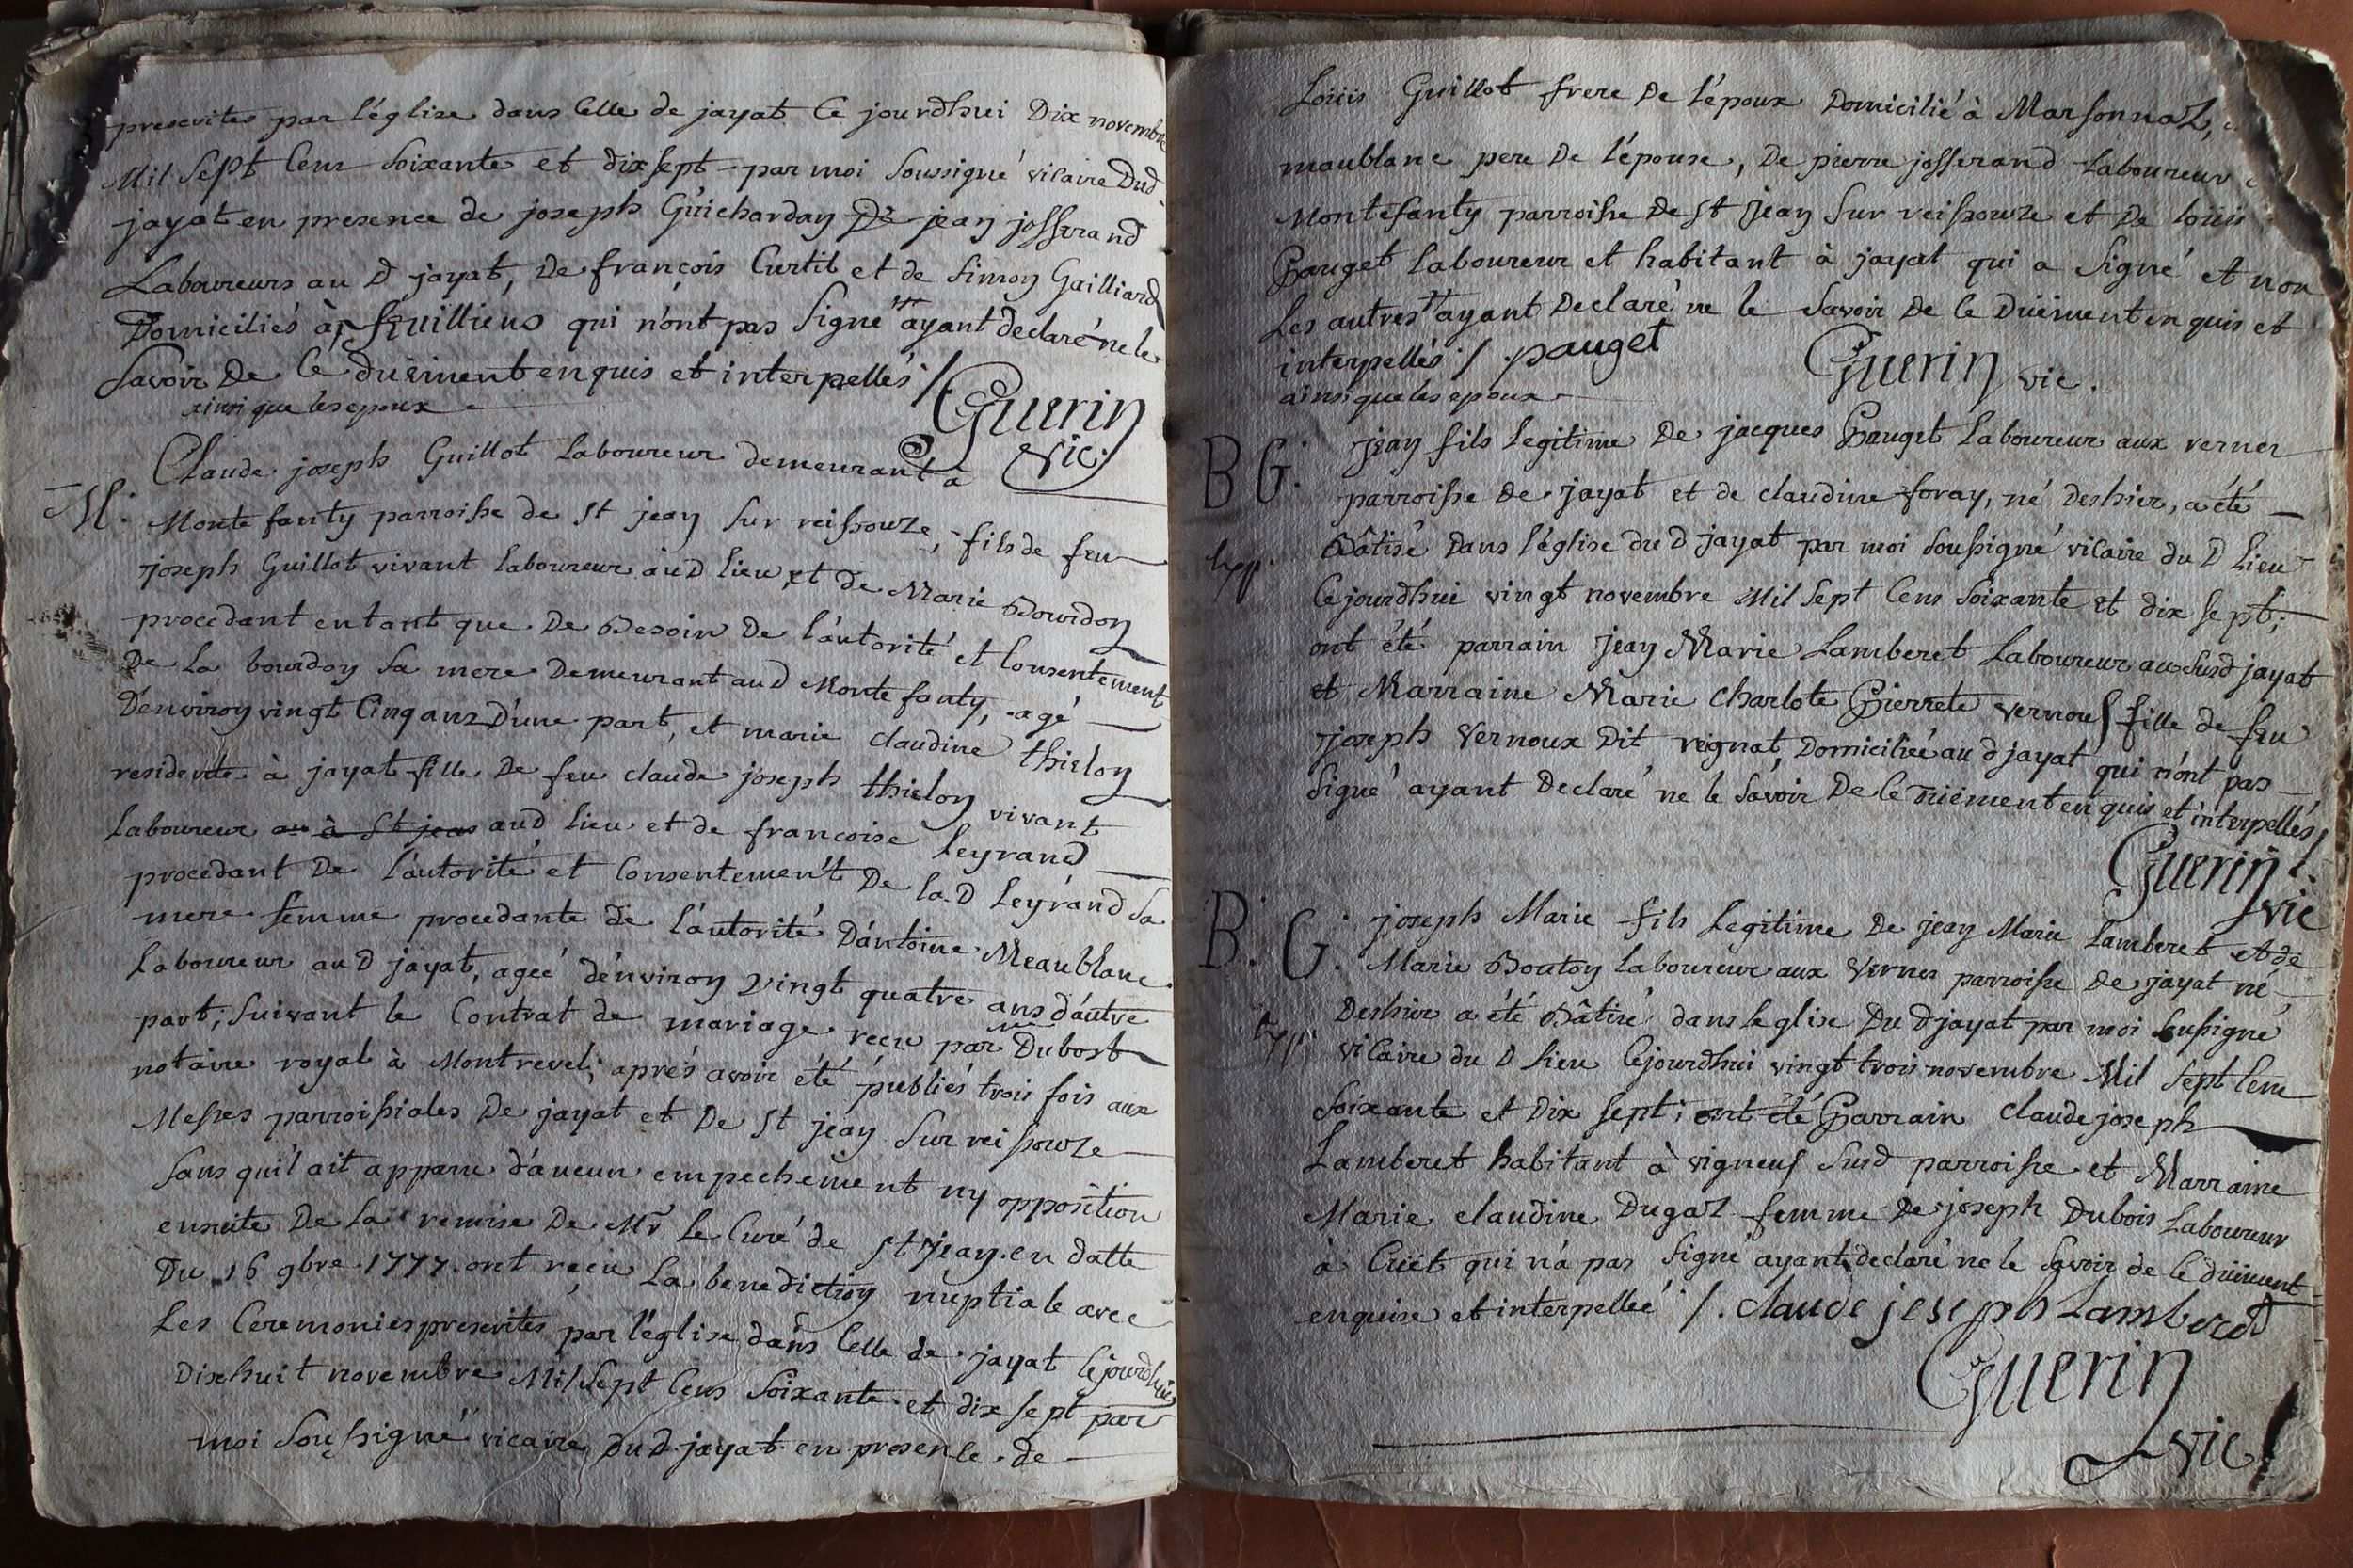 prescrites par l'église dans Celle de jayat Ce jourdhui Dix novembre
Mil Sept Cens Soixante et dix sept par moi Soussigné vicaire Dud
jayat en presence de joseph Guichardan De jean josserand
Laboureurs au D jayat, De françois Curtil et de Simon Gailliard
Domiciliés à feuilliens qui n'ont pas Signé ayant declaré ne le
Savoir De Ce düement enquis et interpellés ./
ainsi que les epoux
Guerin
vic.
M.
Claude joseph Guillot Laboureur demeurant à
Montefanty parroisse de St jean Sur reissouze, fils de feu
joseph Guillot vivant laboureur aud lieu et de Marie Bourdon
procedant en tant que De Besoin De l'autorité et Consentement
De la bourdon Sa mere Demeurant au D Montefanty, agé
D'environ vingt Cinq ans D'une part, et marie claudine thielon
residente à jayat fille De feu claude joseph thielon vivant
Laboureur au à St jean aud lieu et de francoise leyrand
procedant De l'autorité et Consentement De la D Leyrand Sa
mere femme procedante de l'autorité D'antoine Meaublanc
Laboureur au D jayat, ageé d'environ vingt quatre ans d'autre
part; Suivant le Contrat de mariage reçu par me Dubost
notaire royal à Montrevel; aprés avoir été publiés trois fois aux
Messes parroissiales De jayat et De St jean Sur reissouze
Sans qu'il ait apparu d'aucun empechement ny opposition
ensuite De la remise De Mr le Curé de St jean en datte
Du 16 9bre 1777. ont reçu La benediction nuptiale avec
Les Ceremonies prescrites par l'église dans Celle de jayat Cejourdhui
Dixhuit novembre Mil Sept Cens Soixante et dix sept par
moi Soussigné vicaire du D jayat en presence de
Loüis Guillot frere De l'époux Domicilié à Marsonnaz,
maublanc pere De l'épouse, De pierre josserand Laboureur
Montefanty parroisse De St jean Sur reissouze et De loüis
Pauget laboureur et habitant à jayat qui a Signé et non
Les autres ayant Declaré ne le Savoir De Ce Düement enquis et
interpellés ./. pauget
Guerin vic.
ainsi que les epoux
B G.
jean fils legitime De jacques Pauget Laboureur aux vernes
parroisse De jayat et de claudine foray, né Deshier, a été
Bâtisé Dans l'église du D jayat par moi Soussigné vicaire du D Lieu
Cejourdhui vingt novembre Mil Sept Cens Soixante et dix sept;
ont été parrain jean Marie Lamberet Laboureur au Susd jayat
et Marraine Marie Charlote Pierrete vernoux fille de feu
joseph Vernoux Dit reignat, Domiciliée au d jayat qui n'ont pas
Signé ayant Declaré ne le Savoir De Ce Düement enquis et interpellés ./.
Guerin
vic
B. G.
joseph Marie fils Legitime De jean Marie Lamberet et de
Marie Bouton laboureur aux Vernes parroisse De jayat né
Deshier a été Bâtisé dans leglise Du D jayat par moi Soussigné
vicaire du D lieu Cejourdhui vingt trois novembre Mil Sept Cens
Soixante et Dix sept; ont été Parrain Claude joseph
Lamberet habitant à vigneux Susd parroisse et Marraine
Marie claudine Dugaz femme De joseph Dubois Laboureur
à Cüet qui n'a pas Signé ayant declaré ne le Savoir de Ce düement
enquise et interpelleé ./. claude joseph Lamberet
Guerin
vic